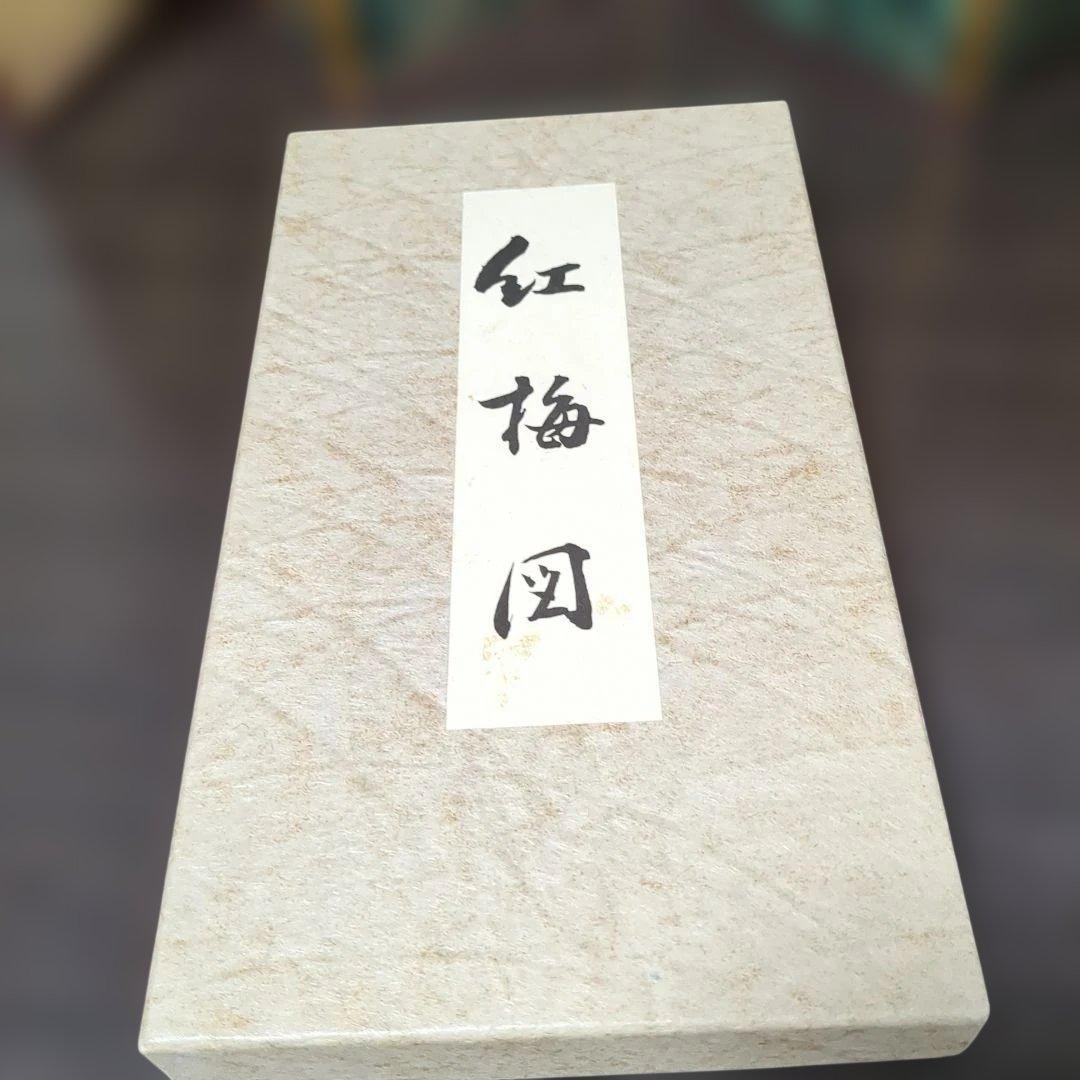 紅梅図